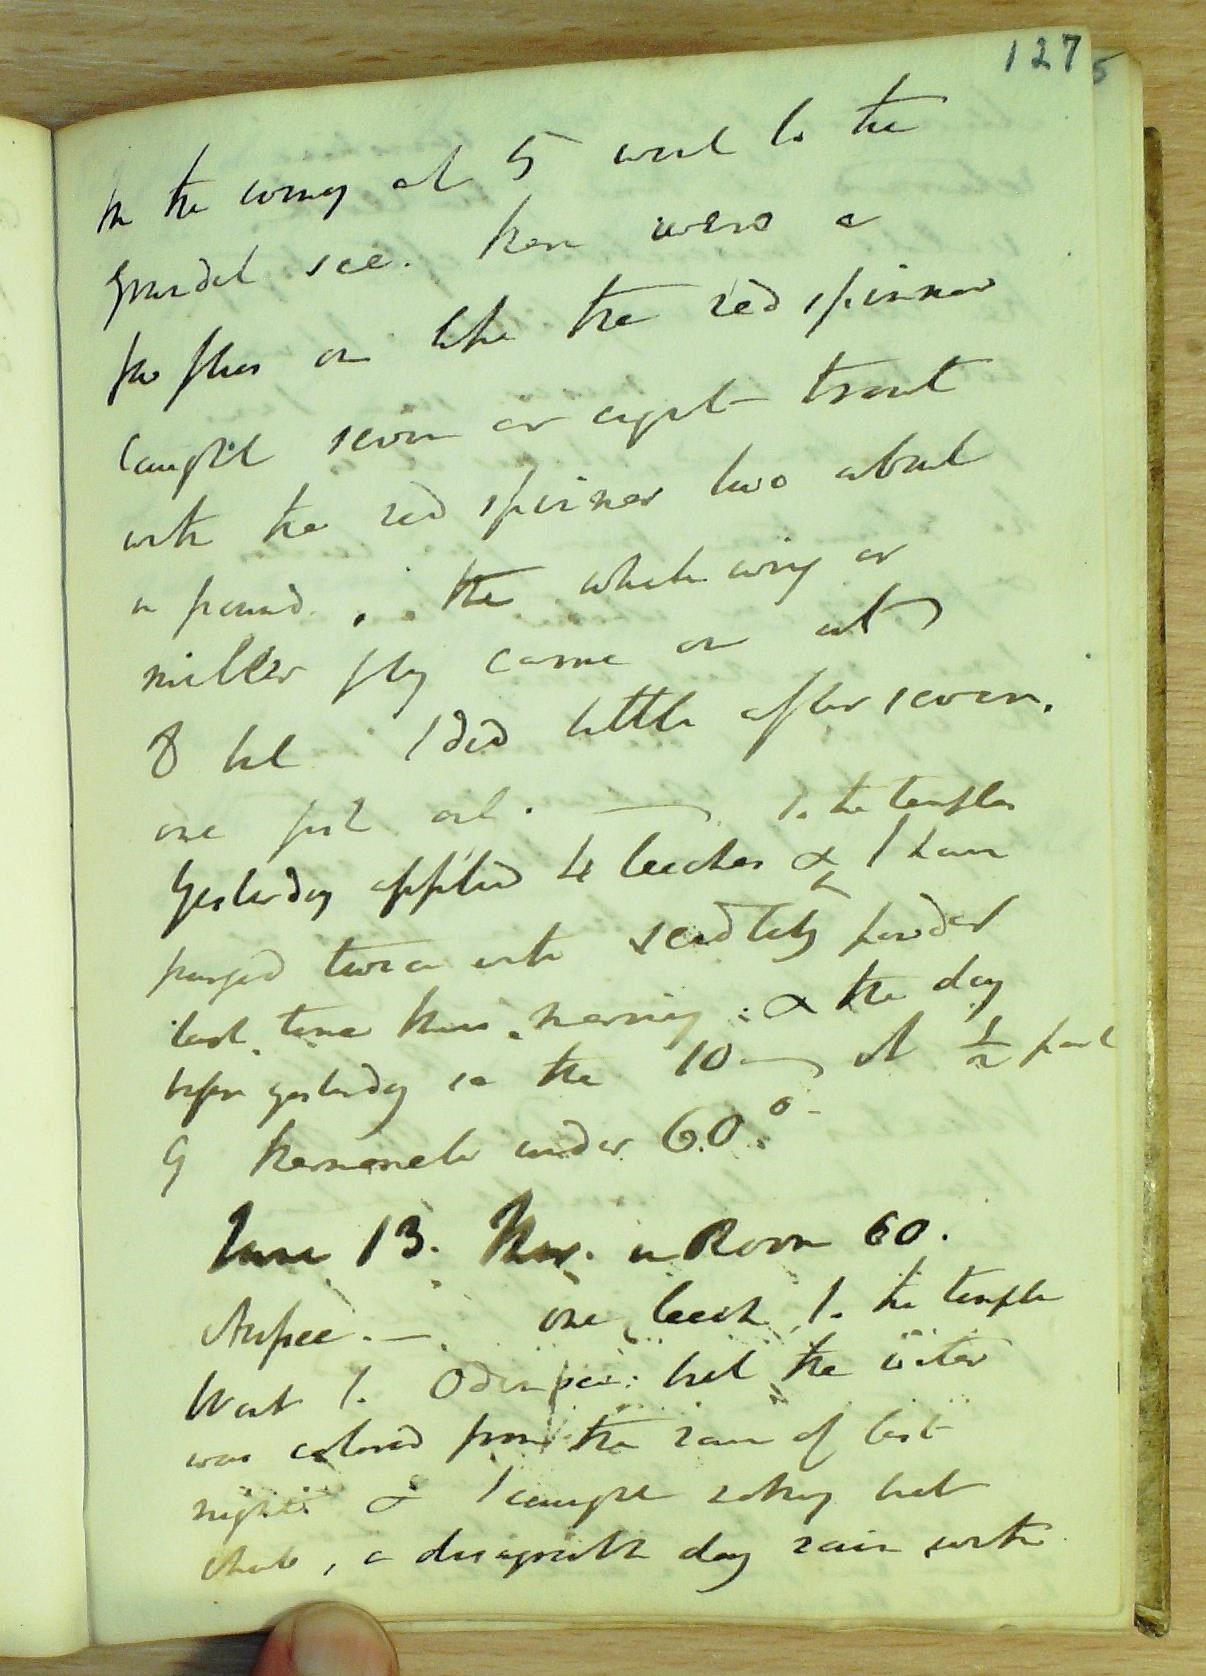 127 5
In the evening at 5 went to the
Grundel see. there were a
few flies on like the red spinner
Caught seven or eight trout
with the red spinner two about
a pound. the white wing or
miller fly came on at
8 but I did little after seven.
one fish only. to the temples
Yesterday applied 4 leeches & I have
purged twice with seidlitz powder
last time this morning: & the day
before yesterday in the 10 at ½ past
9 thermometer under 60.°
June 13. Ther. in Room 60.
Aussee. — one leech to the temple
Went to Oden see: but the water
was colored from the rain of last
night & I caught nothing but
chub, a disagreeable day rain with